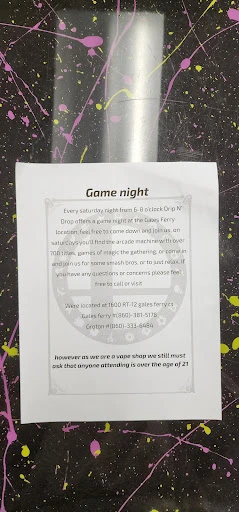 Game night
Every saturday night from 6-8 o'clock Drip N'
Drop offers a game night at the Gales Ferry
location, feel free to come down and join us, on
saturdays you'll find the arcade machine with over
700 titles, games of magic the gathering, or come in
and join us for some smash bros, or to just relax. if
you have any questions or concerns please feel
free to call or visit
Were located at 1600 RT-12 gales ferry ct
Gales ferry #(860)-381-5176
Groton #(860)-333-6484
however as we are a vape shop we still must
ask that anyone attending is over the age of 21